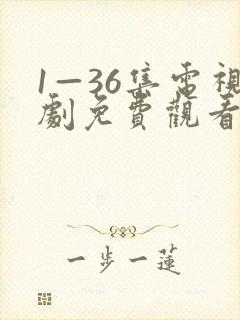 1—36集電視
劇免費觀看
一步一蓮